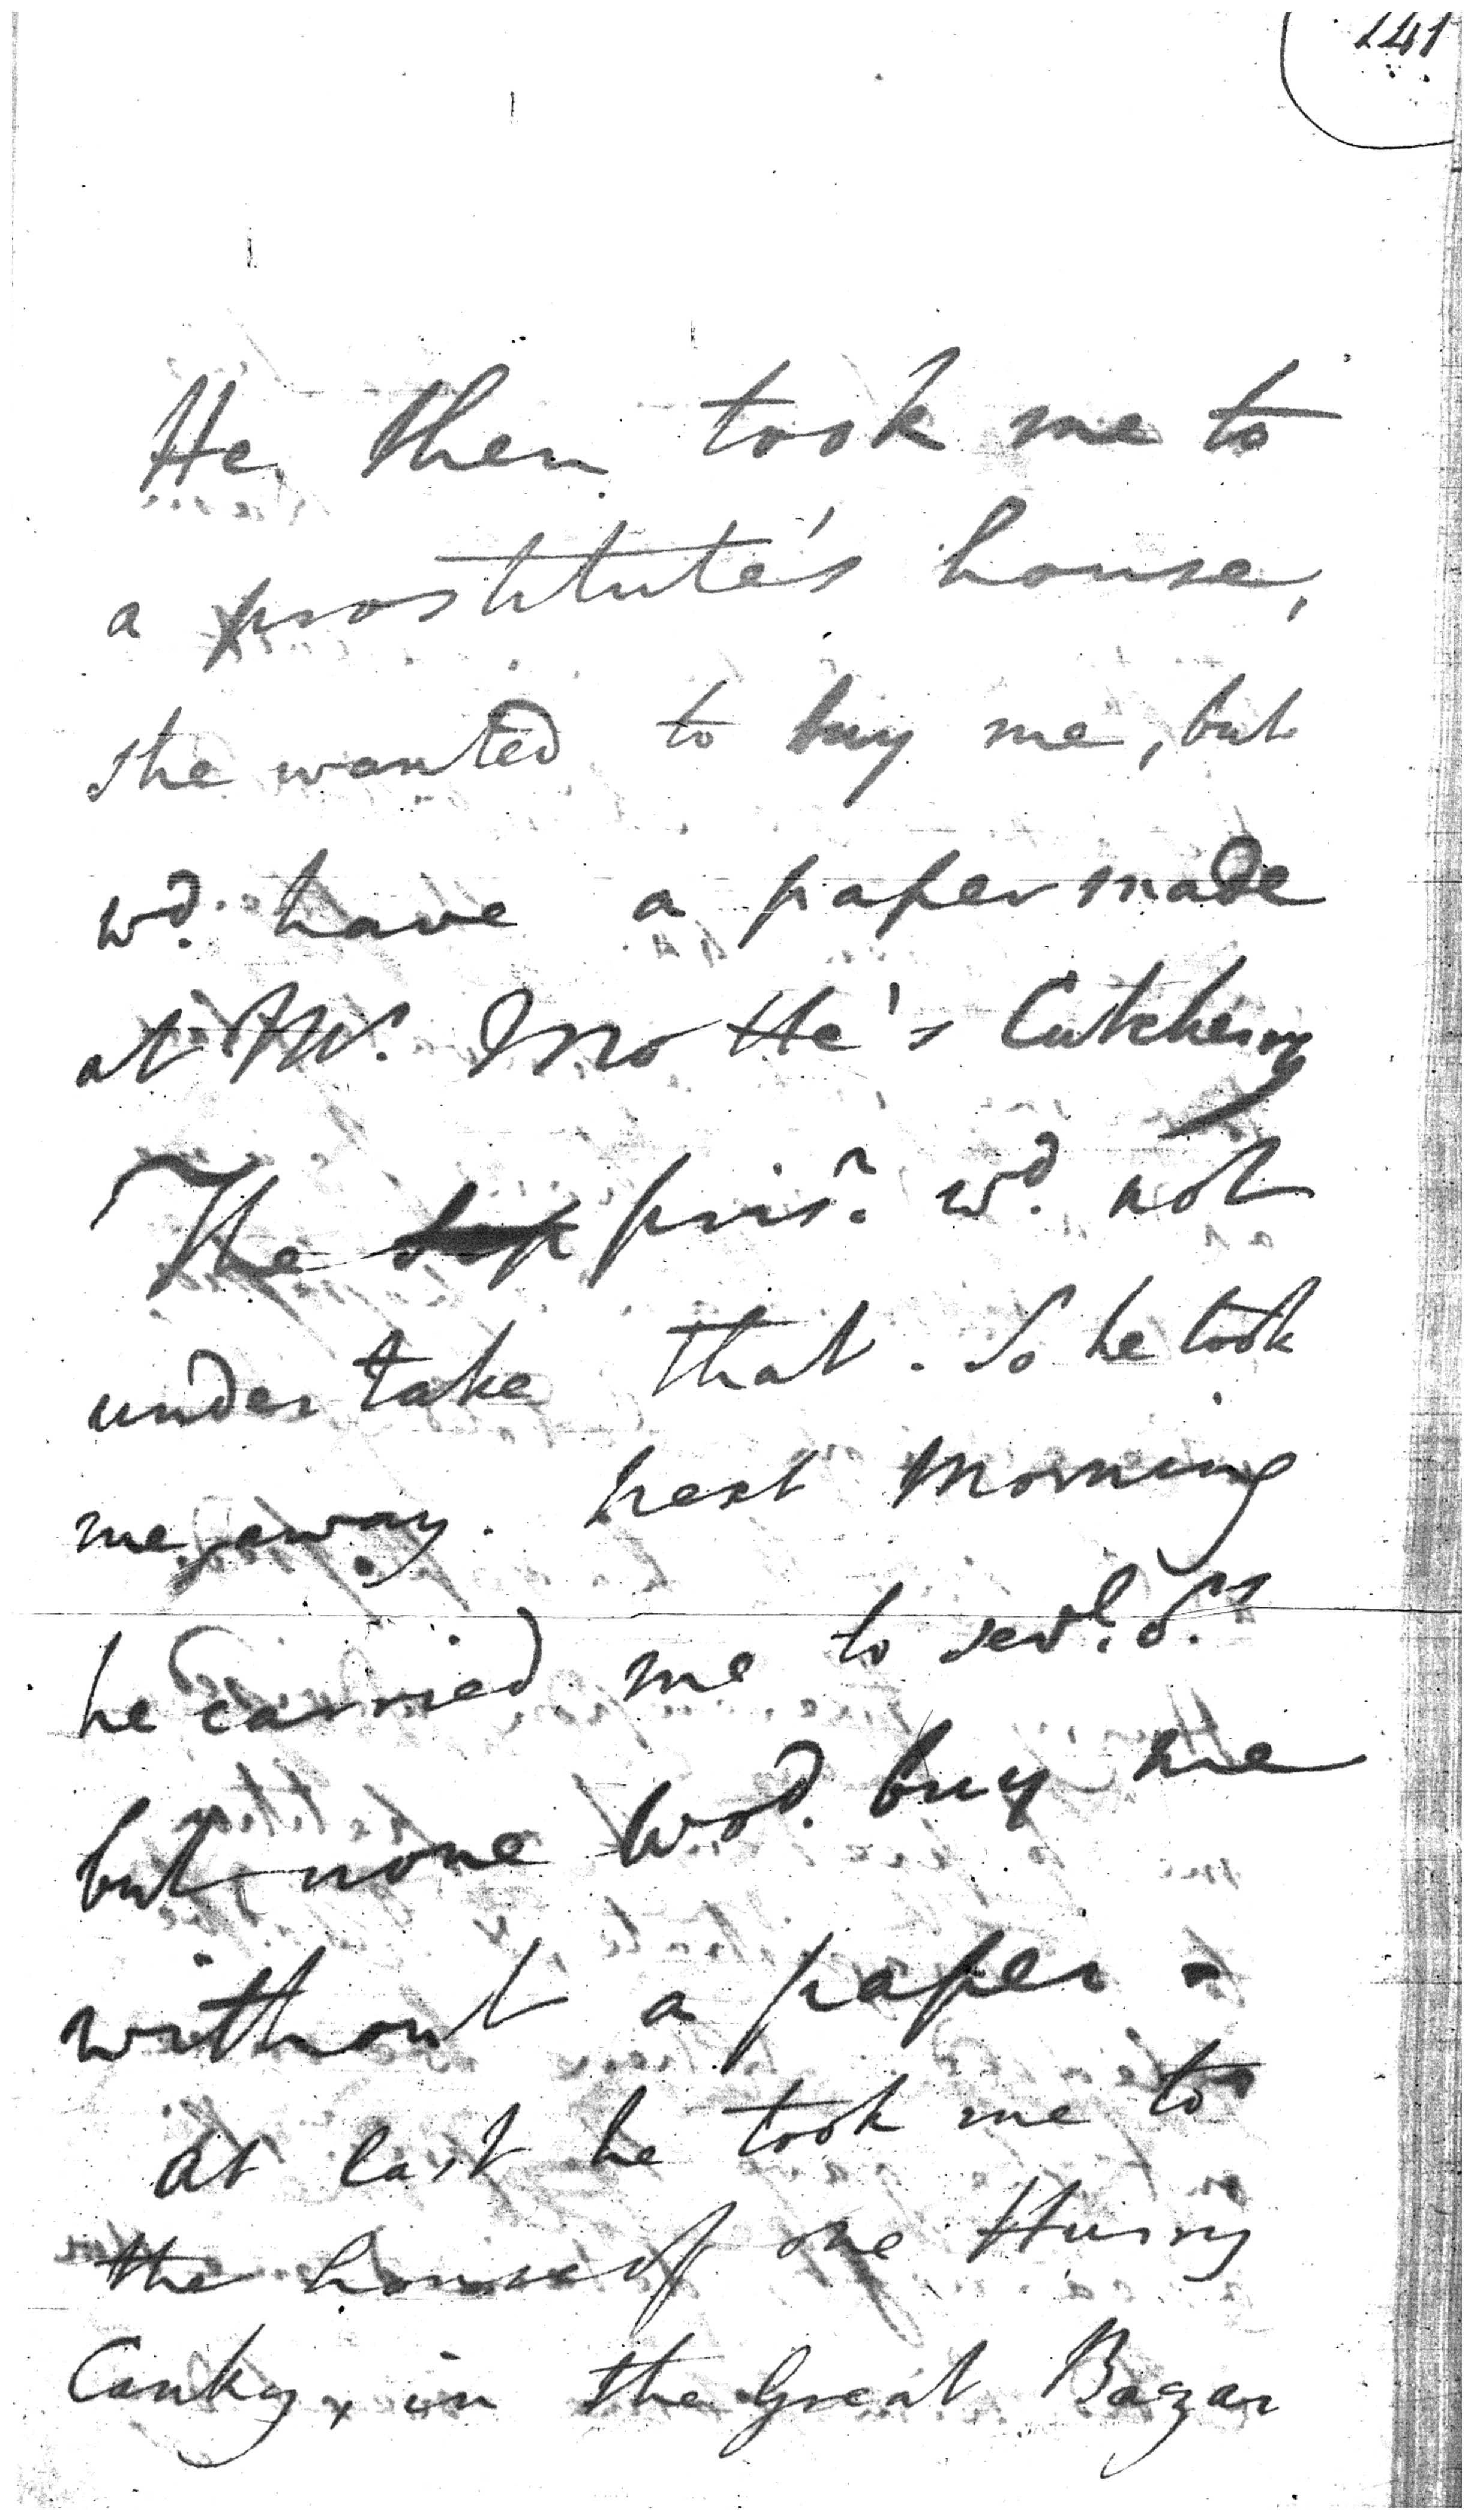 141
He then took me to
a prostitute's house,
she wanted to buy me, but
wd. have a paper made
at Mr. Motte's Cutcherry
The prisr. wd. not
undertake that. So he took
me away. next morning
he carried me to sevl. Srs
but none wod. buy me
without a paper -
At last he took me to
the house of one Hurry
in the Great Bazar